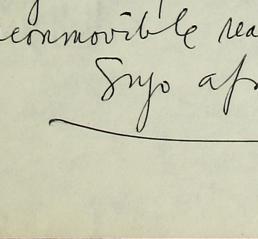 conmovible rea
Suyo af